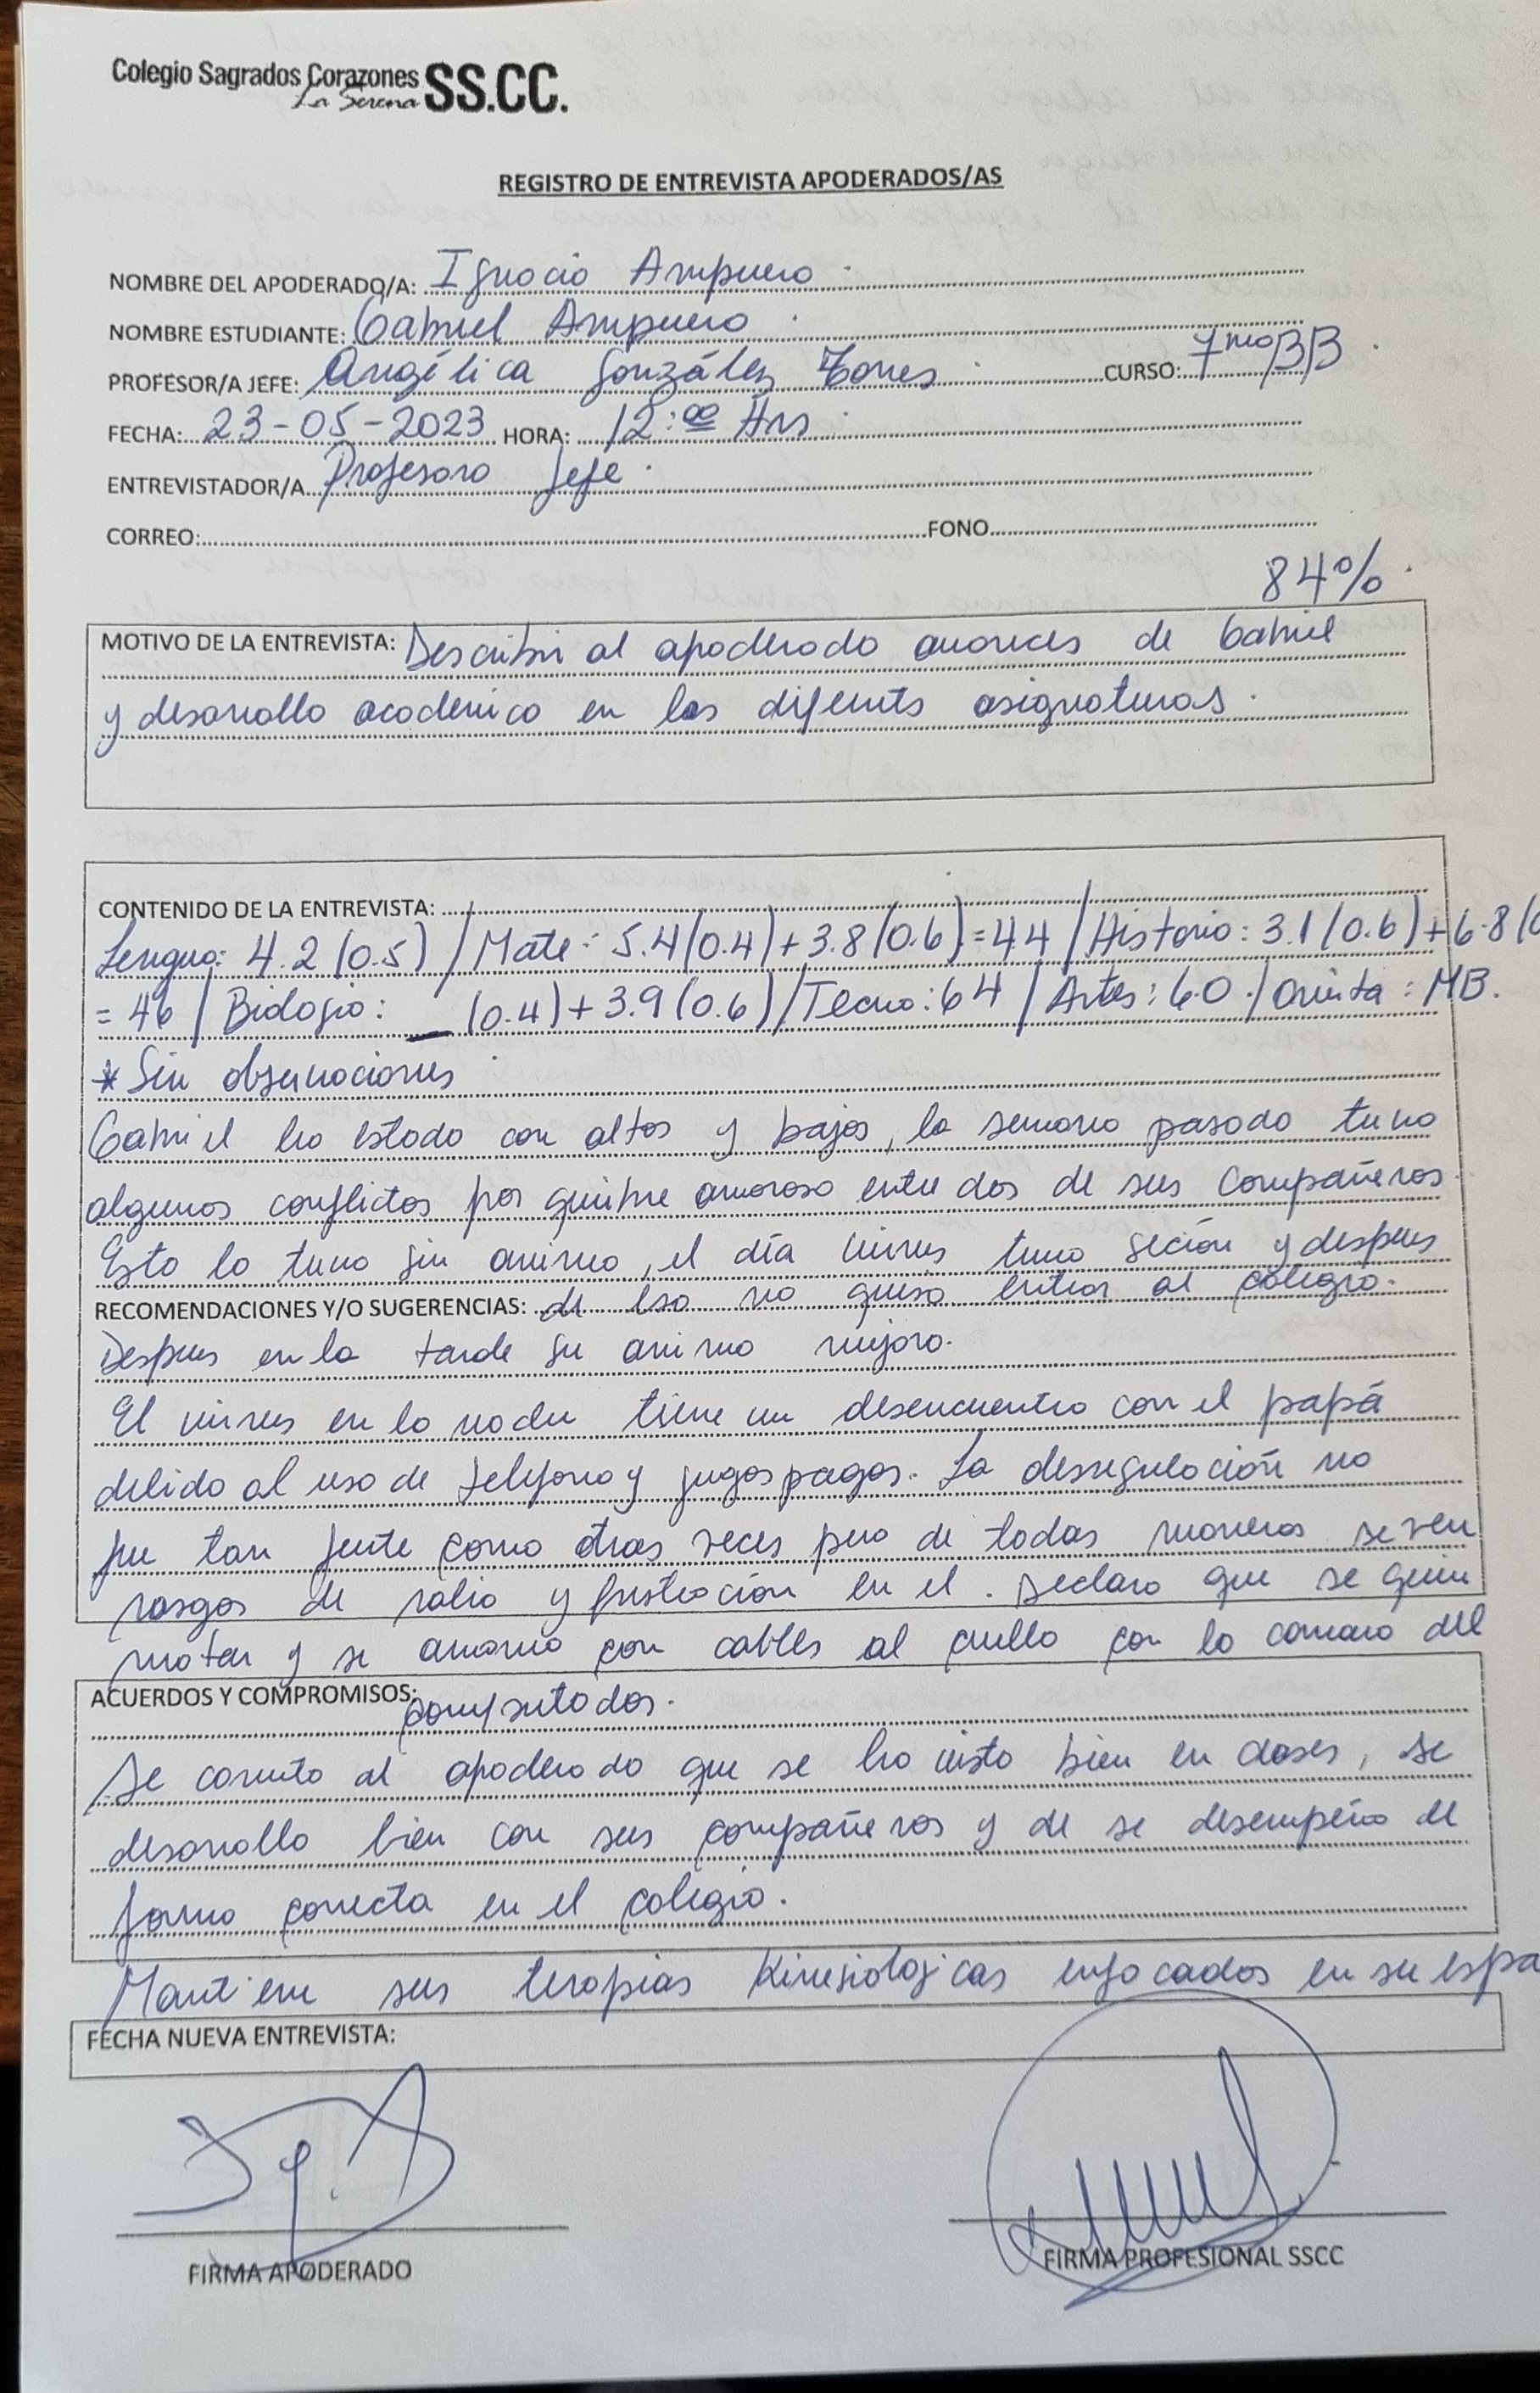 Colegio Sagrados Corazones SS.CC.
La Serena
REGISTRO DE ENTREVISTA APODERADOS/AS
NOMBRE DEL APODERADO/A: Ignacio Ampuero
NOMBRE ESTUDIANTE: Gabriel Ampuero
PROFESOR/A JEFE: Angélica González Torres CURSO: 7mo/B
FECHA: 23-05-2023 HORA: 12:00 Hrs
ENTREVISTADOR/A Profesora Jefe
CORREO: FONO
84%
MOTIVO DE LA ENTREVISTA: Describir al apoderado avances de Gabriel
y desarrollo académico en las diferentes asignaturas.
CONTENIDO DE LA ENTREVISTA:
Lengua: 4.2 (0.5) / Mate: 5.4 (0.4) + 3.8 (0.6) = 44 / Historia: 3.1 (0.6) + 6.8 (0
= 46 / Biologia: _ (0.4) + 3.9 (0.6) / Tecno: 64 / Artes: 60 / : MB.
* Sin observaciones
Gabriel ha estado con altos y bajos, la semana pasada tuvo
algunos conflictos por quiebre amoroso entre dos de sus compañeros.
Esto lo tuvo sin animo, el día viernes tuvo seción y despues
RECOMENDACIONES Y/O SUGERENCIAS: de eso no quiso entrar al colegio.
Despues en la tarde su animo mejoro.
El viernes en la noche tiene un desencuentro con el papá
debido al uso de telefono y jugos pagos. La desregulación no
fue tan fuerte como otras veces pero de todas maneras se ven
rasgos de rabia y frustración en el. Declaro que se quiere
matar y se amarro con cables al cuello con la camara del
ACUERDOS Y COMPROMISOS: computador.
Se comenta al apoderado que se ha visto bien en clases, se
desarrolla bien con sus compañeros y de se desempeña de
forma correcta en el colegio.
Mantiene sus terapias Kinesiologicas enfocados en su espa
FECHA NUEVA ENTREVISTA:
FIRMA APODERADO
FIRMA PROFESIONAL SSCC